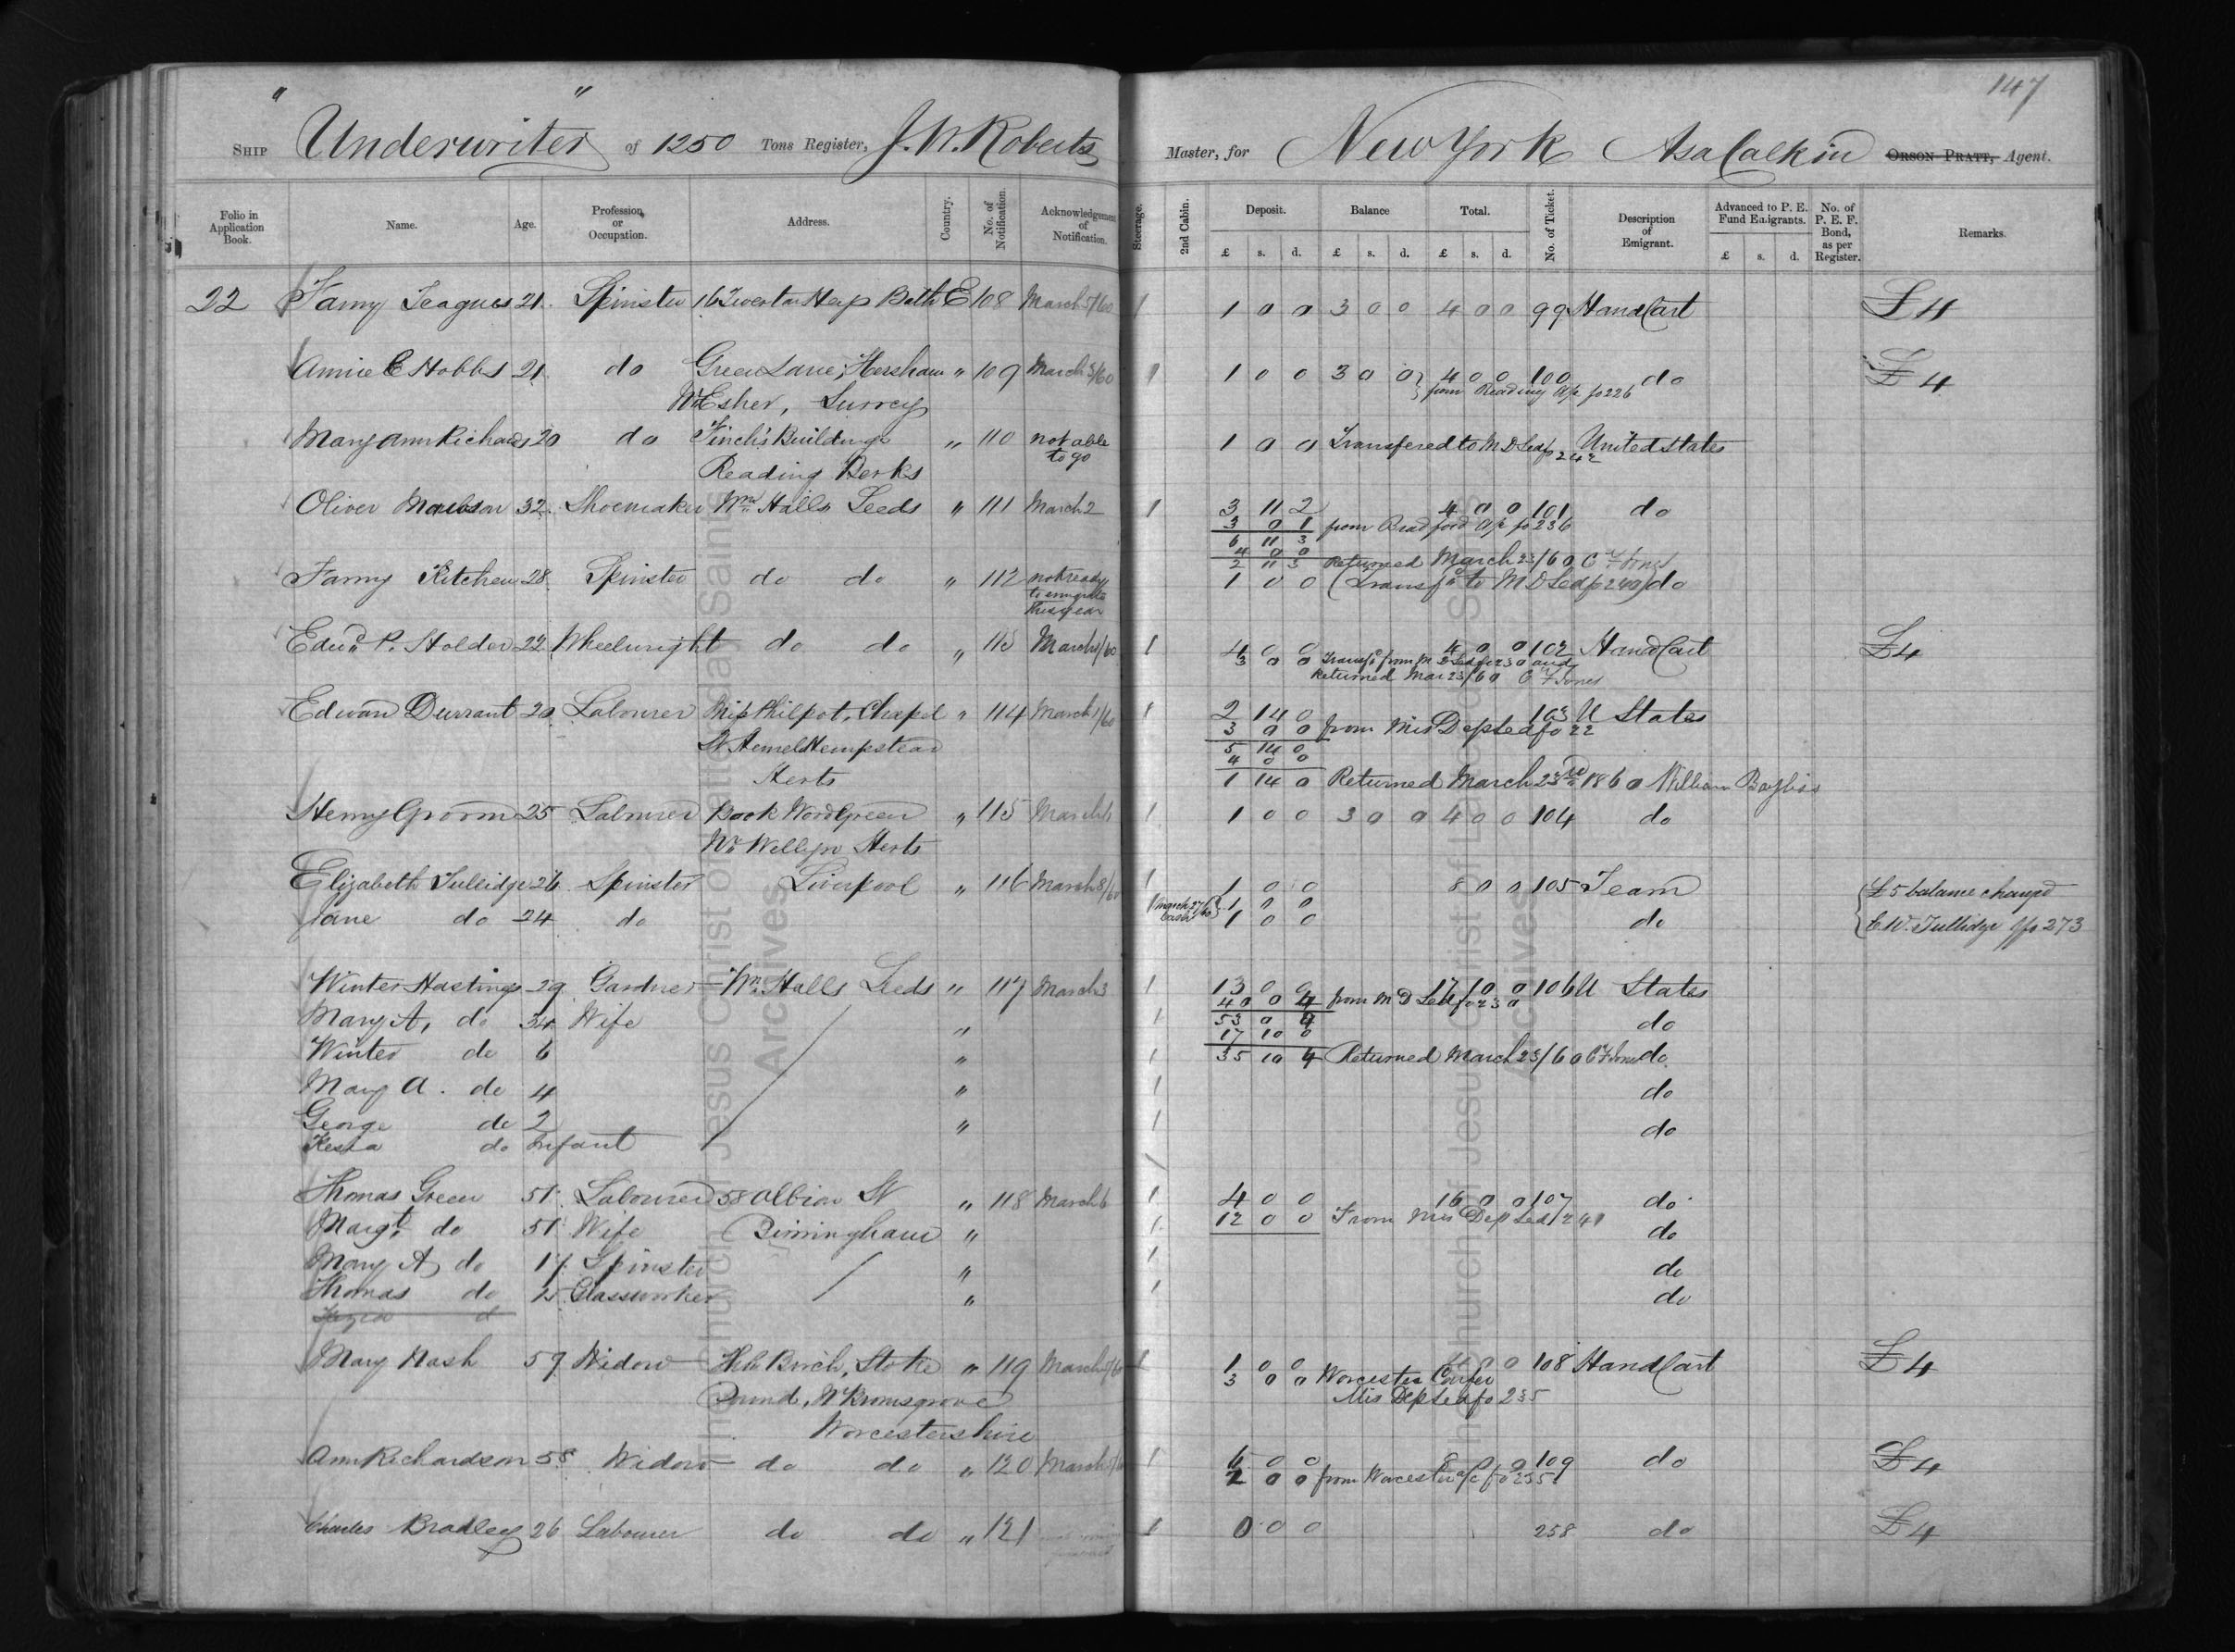 147
SHIP "Underwriter" of 1250 Tons Register, J. W. Roberts Master, for New York Asa Calkin ORSON PRATT, Agent.
Folio in Application Book. Name. Age. Profession or Occupation. Address. Country. No. of Notification. Acknowledgement of Notification. Steerage. 2nd Cabin. Deposit. Balance Total. No. of Ticket. Description of Emigrant. Advanced to P. E. Fund Emigrants. No. of P. E. F. Bond, as per Register. Remarks.
£ s. d. £ s. d. £ s. d. £ s. d.
22 Fanny Teagues 21 Spinster 16 Bath E 108 March 5/60 1 1 0 0 3 0 0 4 0 0 99 Hand Cart £4
Annie E Hobbs 21 do Green Lane, Hersham " 109 March 5/60 1 1 0 0 3 0 0 4 0 0 100 do £4
Nr Esher, Surrey from Reading a/c fo 226
Mary Ann Richards 20 do Finch's Buildings " 110 not able to go 1 0 0 Transfered to M D Led fo 242 United States
Reading Berks
Oliver 32 Shoemaker Wm Halls Leeds " 111 March 2 1 3 11 2 4 0 0 101 do
3 0 1 from Bradford a/c fo 236
6 11 3
4 0 0
2 11 3 Returned March 23/60 C F Jones
Fanny Kitchen 28 Spinster do do " 112 not ready to emigrate this year 1 0 0 (Transfd to M D Led fo 240) do
Edwd. P. Holder 22 Wheelwright do do " 113 March 1/60 1 4 0 0 4 0 0 102 Hand Cart £4
3 0 0 Transfd from M D Led fo 230 and
Returned Mar 23/60 C F Jones
Edward Durrant 20 Labourer Philpot, Chapel " 114 March 1/60 1 2 14 0 103 U States
St Hemel Hempstead 3 0 0 from Mis Dep Led fo 22
5 14 0
4 0 0
Herts 1 14 0 Returned March 23rd 1860 William Bayliss
Henry Groom 25 Labourer Wood Green " 115 March 6 1 1 0 0 3 0 0 4 0 0 104 do
Nr Wellyn Herts
Elizabeth Tullidge 26 Spinster Liverpool " 116 March 8/60 1 1 0 0 8 0 0 105 Team £5 balance charged
March 27/60 Cash 1 0 0
Jane do 24 do 1 1 0 0 do E. W. Tullidge fo 273
Winter Hastings 29 Gardner Wm. Halls Leeds " 117 March 3 1 13 0 0 17 10 0 106 U States
40 0 4 from M D Led fo 230
Mary A, do 34 Wife " 1 53 0 4 do
17 10 0
Winter do 6 " 1 35 10 4 Returned March 23/60 C F Jones do
Mary A. do 4 " 1 do
George do 2 " 1 do
do Infant
Thomas Green 51 Labourer 58 Albion St " 118 March 6 1 4 0 0 16 0 0 107 do
Margt. do 51 Wife Birmingham " 1 12 0 0 From Mis Dep Led 241 do
Mary A do 17 Spinster " 1 do
Thomas do Glassworker " 1 do
Mary Nash 59 Widow Birch, Stoke " 119 March 1 1 0 0 4 0 0 108 Hand Cart £4
3 0 0 Worcester Confer
Pound, Nr Bromsgrove Mis Dep Led fo 235
Worcestershire
Ann Richardson 58 Widow do do " 120 March 1 6 0 0 8 0 0 109 do £4
2 0 0 from Worcester a/c fo 235
Charles Bradley 26 Labourer do do " 121 1 0 0 0 258 do £4
The Church of Jesus Christ of Latter-day Saints
Archives
The Church of Jesus Christ of Latter-day Saints
Archives